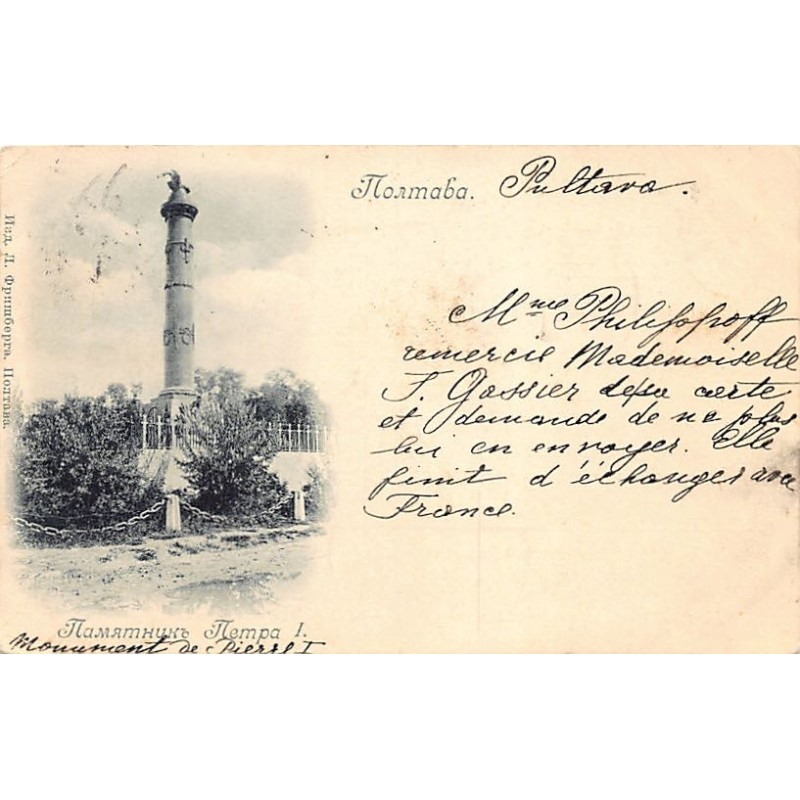 Полтава. Pultava.
Изд. Л. Фришберга. Полтава.
Mme Philippoff
remercie Mademoiselle
Gossier carte
et demande de ne plus
lui en envoyer. Elle
finit d'échanger avec
France.
Памятникъ Петра I.
Monument de Pierre I